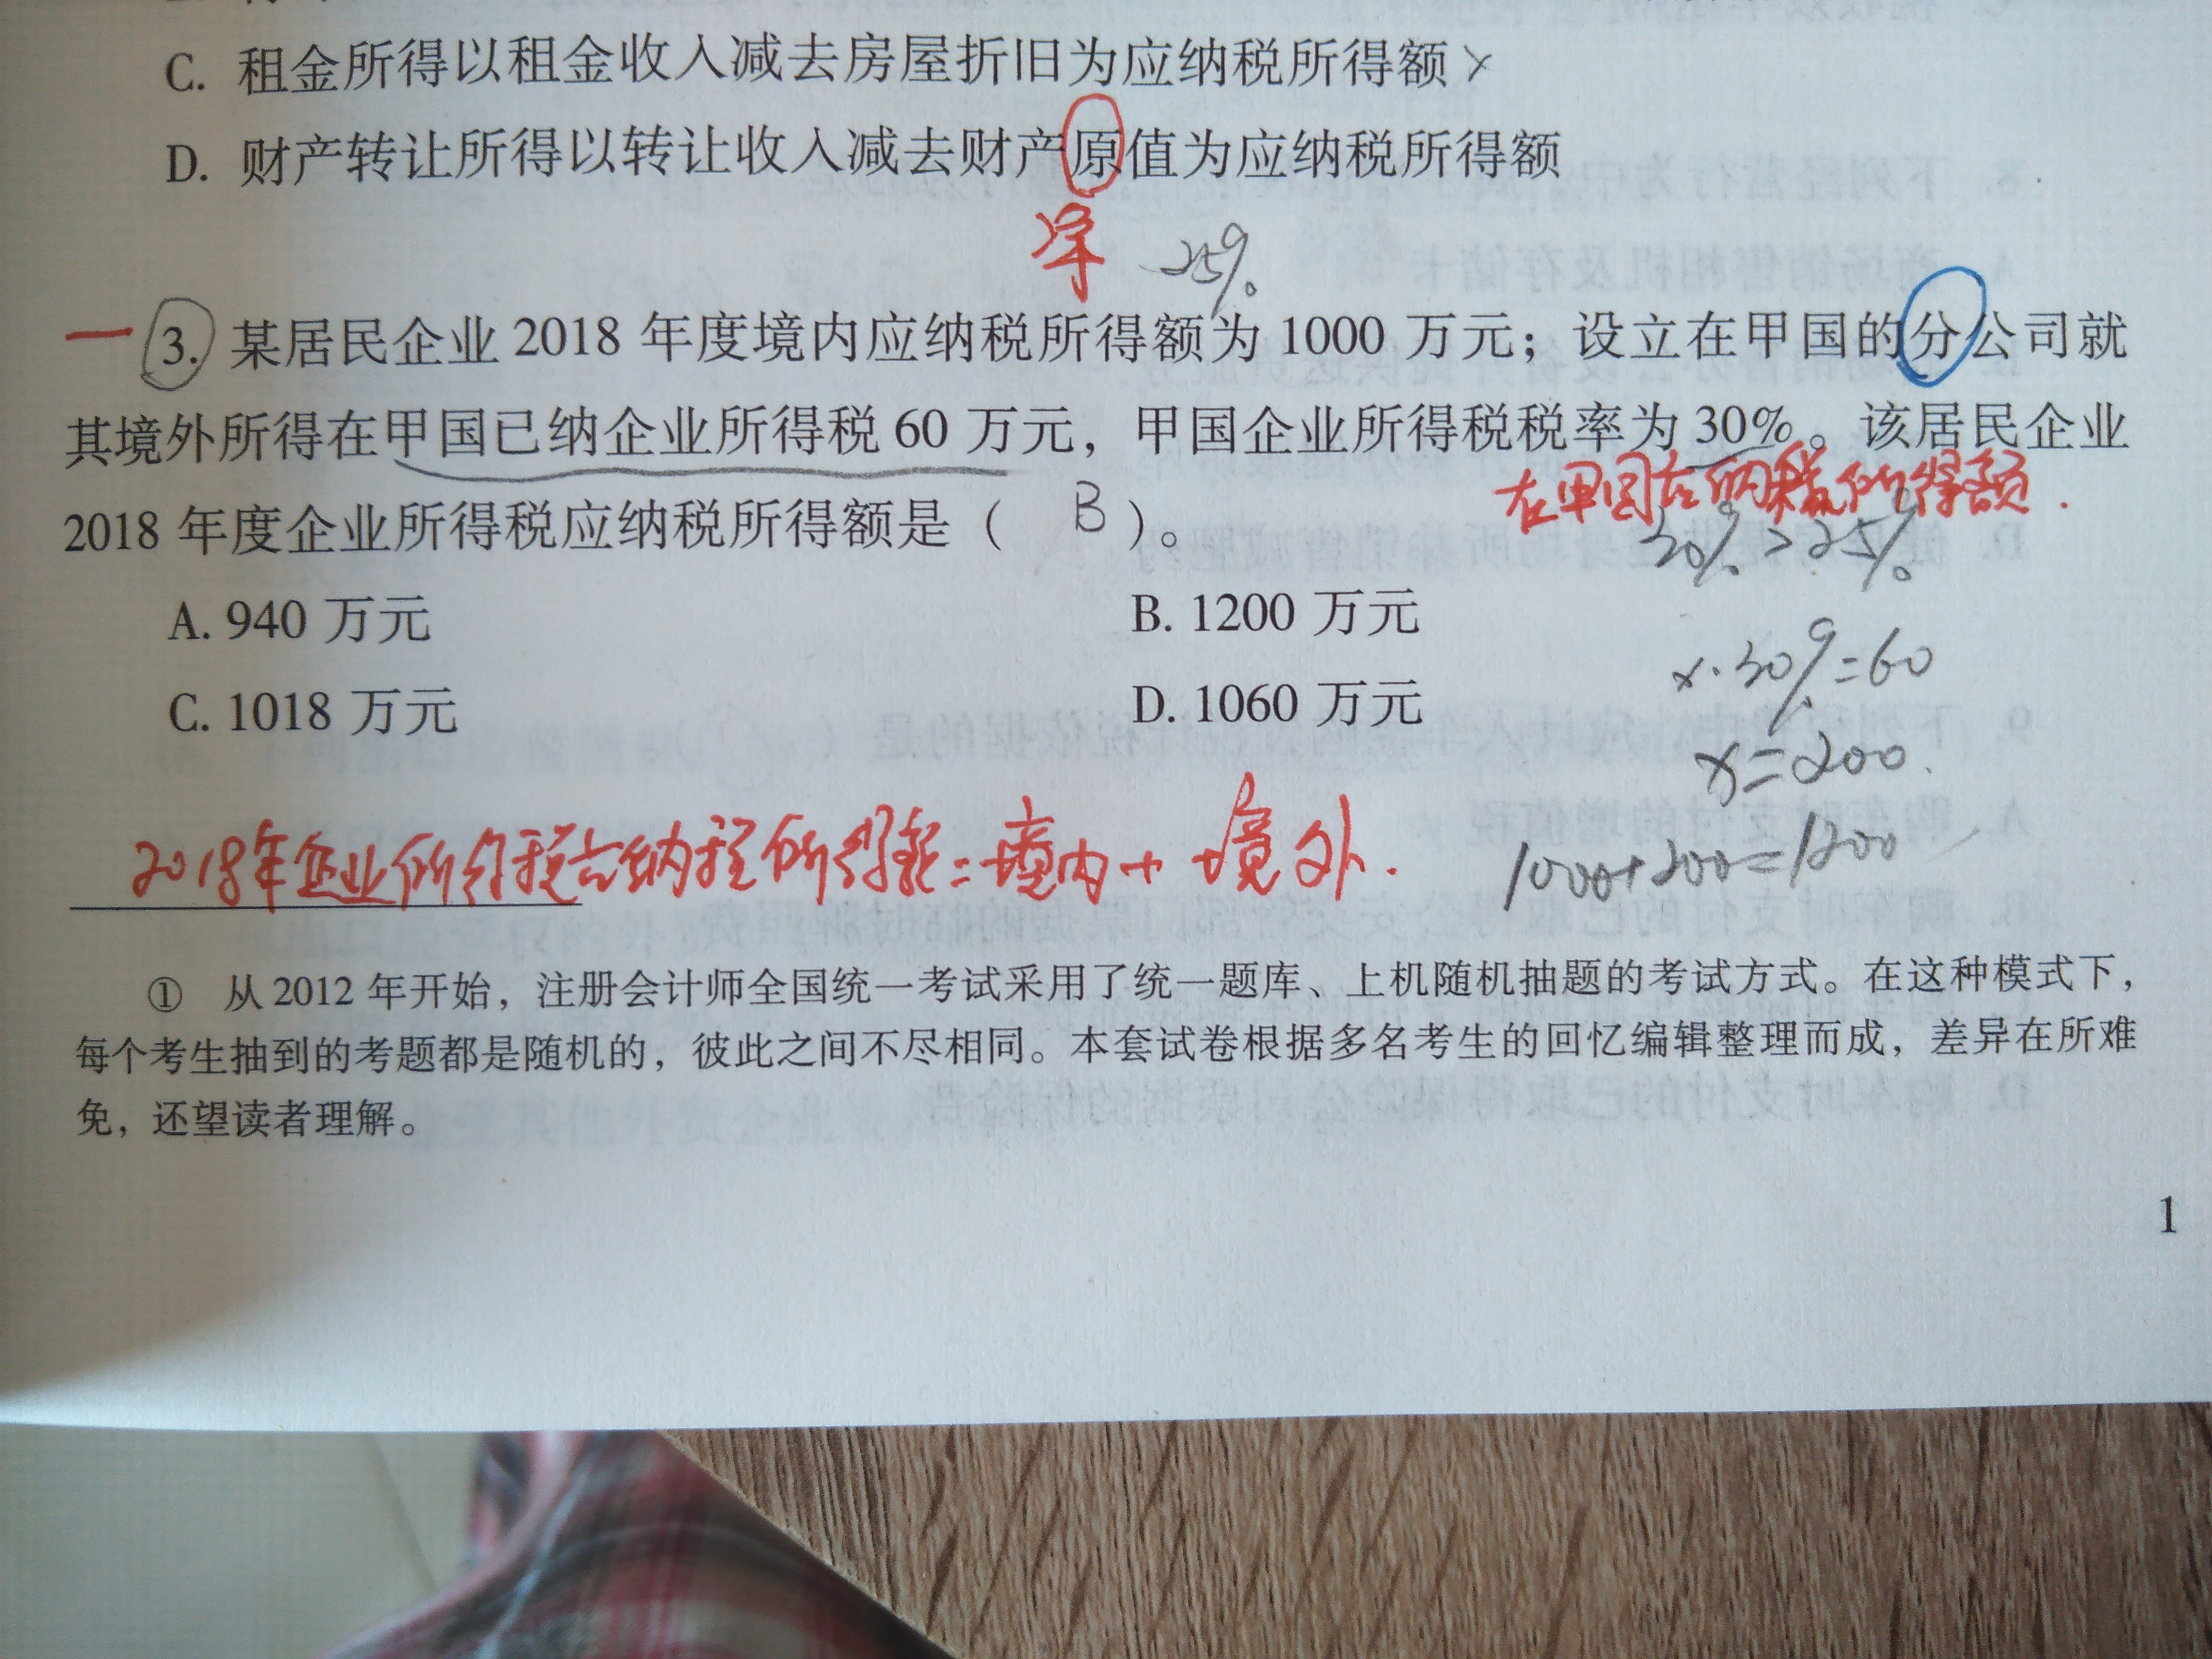 C. 租金所得以租金收入减去房屋折旧为应纳税所得额 ×
D. 财产转让所得以转让收入减去财产原值为应纳税所得额
净
25%
3. 某居民企业 2018 年度境内应纳税所得额为 1000 万元；设立在甲国的分公司就
其境外所得在甲国已纳企业所得税 60 万元，甲国企业所得税税率为 30%。该居民企业
在甲国应纳税所得额.
2018 年度企业所得税应纳税所得额是（ B ）。
30%>25%
A. 940 万元
B. 1200 万元
x·30%=60
C. 1018 万元
D. 1060 万元
x=200.
2018年企业所得税应纳税所得额=境内+境外.
1000+200=1200
① 从 2012 年开始，注册会计师全国统一考试采用了统一题库、上机随机抽题的考试方式。在这种模式下，
每个考生抽到的考题都是随机的，彼此之间不尽相同。本套试卷根据多名考生的回忆编辑整理而成，差异在所难
免，还望读者理解。
1